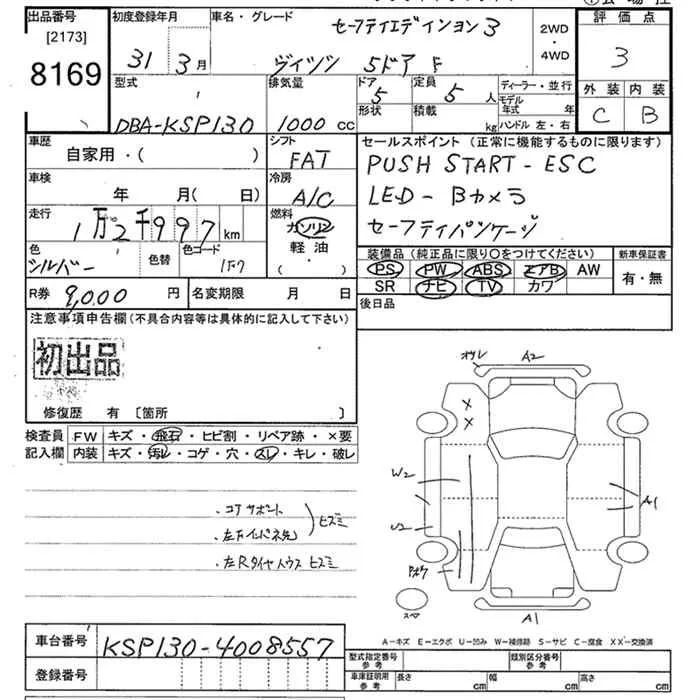 出品番号
[2173]
8169
初度登録年月
31 3月
車名・グレード
セーフティエディション3
ヴィッツ 5ドア F
2WD
・
4WD
評価点
3
外装 内装
C B
型式
DBA-KSP130
排気量
1000 cc
ドア
5
定員
5 人
形状
積載
kg
ディーラー・並行
モデル
年式 年
ハンドル 左・右
車歴
自家用・( )
シフト
FAT
車検
年 月( 日)
冷房
A/C
走行
1万2千997 km
燃料
ガソリン
軽油
( )
色
シルバー
色替
色コード
1F7
セールスポイント(正常に機能するものに限ります)
PUSH START - ESC
LED - Bカメラ
セーフティパッケージ
装備品(純正品に限り○をつけてください)
新車保証書
PS PW ABS エアB AW
SR ナビ TV カワ
有・無
後日品
R券 9,000 円
名変期限 月 日
注意事項申告欄(不具合内容等は具体的に記入して下さい)
初出品
修復歴 有 〔箇所 〕
検査員
記入欄
FW キズ・飛石・ヒビ割・リペア跡・×要
内装 キズ・汚レ・コゲ・穴・スレ・キレ・破レ
・コアサポート
・左Fインパネ先
ヒズミ
・左Rタイヤハウス ヒズミ
オクレ
A2
×
×
W2
U2
A1
スペア
A1
A-キズ E-エクボ U-凹み W-補修跡 S-サビ C-腐食 XX-交換済
車台番号 KSP130-4008557
登録番号
型式指定番号
参考
類別区分番号
参考
車庫証明用
参考
長さ cm
幅 cm
高さ cm